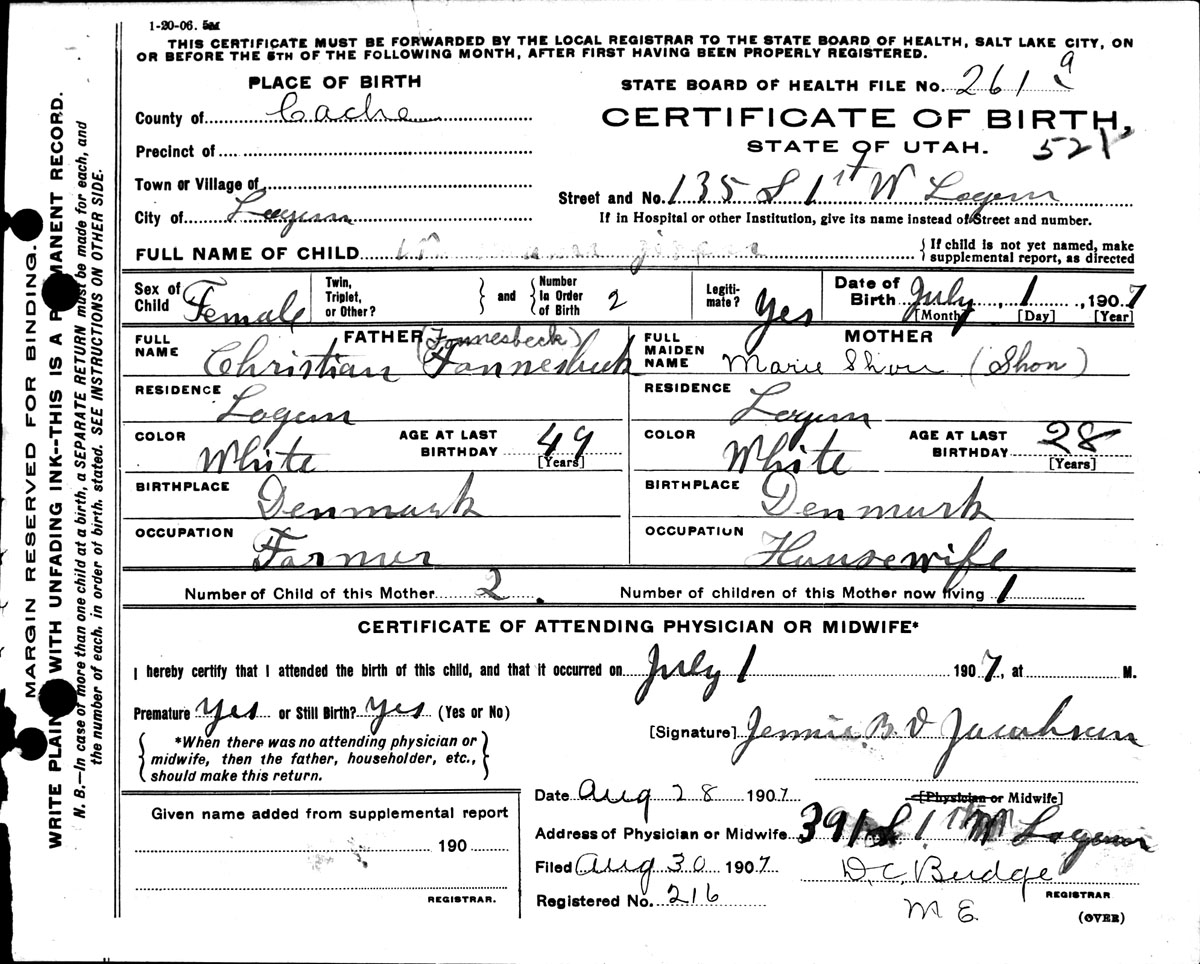 1-20-06. 5M
THIS CERTIFICATE MUST BE FORWARDED BY THE LOCAL REGISTRAR TO THE STATE BOARD OF HEALTH, SALT LAKE CITY, ON
OR BEFORE THE 5TH OF THE FOLLOWING MONTH, AFTER FIRST HAVING BEEN PROPERLY REGISTERED.
PLACE OF BIRTH
STATE BOARD OF HEALTH FILE No. 261 a
County of Cache
CERTIFICATE OF BIRTH,
STATE OF UTAH.
Precinct of
Town or Village of
Street and No. 135 S 1st W Logan
City of Logan
If in Hospital or other Institution, give its name instead of Street and number.
FULL NAME OF CHILD
{ If child is not yet named, make
supplemental report, as directed
Sex of Child Female
Twin, Triplet, or Other?
} and { Number In Order of Birth 2
Legiti-mate? Yes
Date of Birth July 1, 1907
[Month] [Day] [Year]
FATHER
FULL NAME Christian Fonnesbeck (Fonnesbeck)
MOTHER
FULL MAIDEN NAME Marie Shon (Shon)
RESIDENCE Logan
RESIDENCE Logan
COLOR White AGE AT LAST BIRTHDAY 49 [Years]
COLOR White AGE AT LAST BIRTHDAY 28 [Years]
BIRTHPLACE Denmark
BIRTHPLACE Denmark
OCCUPATION Farmer
OCCUPATION Housewife
Number of Child of this Mother 2. Number of children of this Mother now living 1
CERTIFICATE OF ATTENDING PHYSICIAN OR MIDWIFE*
I hereby certify that I attended the birth of this child, and that it occurred on July 1 1907, at M.
Premature Yes or Still Birth? Yes (Yes or No)
[Signature] Jennie B. D Jacobsen
{ *When there was no attending physician or
midwife, then the father, householder, etc.,
should make this return. }
[Physician or Midwife]
Date Aug 28 1907
Given name added from supplemental report
190
REGISTRAR.
Address of Physician or Midwife 391 S 1st W Logan
Filed Aug 30 1907
D. C. Budge
REGISTRAR
Registered No. 216
M E.
(OVER)
MARGIN RESERVED FOR BINDING.
WRITE PLAINLY WITH UNFADING INK--THIS IS A PERMANENT RECORD.
N. B.—In case of more than one child at a birth, a SEPARATE RETURN must be made for each, and
the number of each, in order of birth, stated. SEE INSTRUCTIONS ON OTHER SIDE.